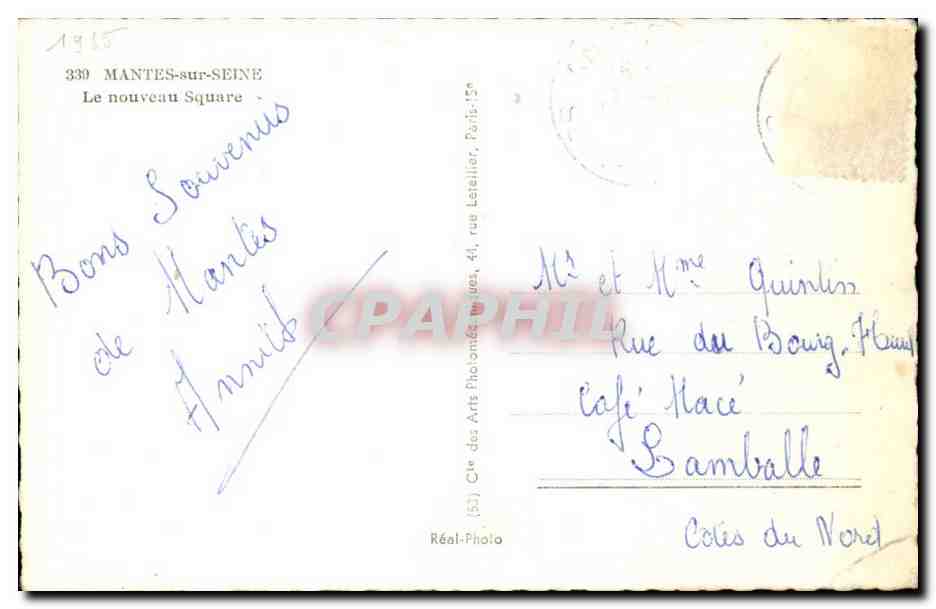 1965
339 MANTES-sur-SEINE
Le nouveau Square
Bons Souvenirs
de Mantes
(53) Cie des Arts Photomécaniques, 44, rue Letellier, Paris-15e
Réal-Photo
CPAPHIL
Mr et Mme Quintin
Rue du Bourg
Café Macé
Lamballe
Cotes du Nord